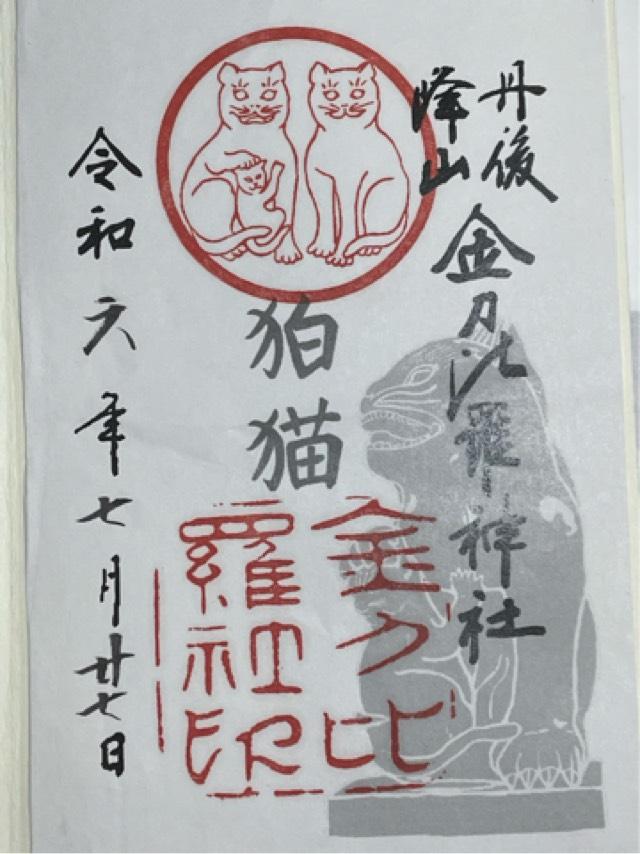 丹後
峰山
金刀比羅神社
狛猫
金刀比
羅社印
令和六年七月廿七日